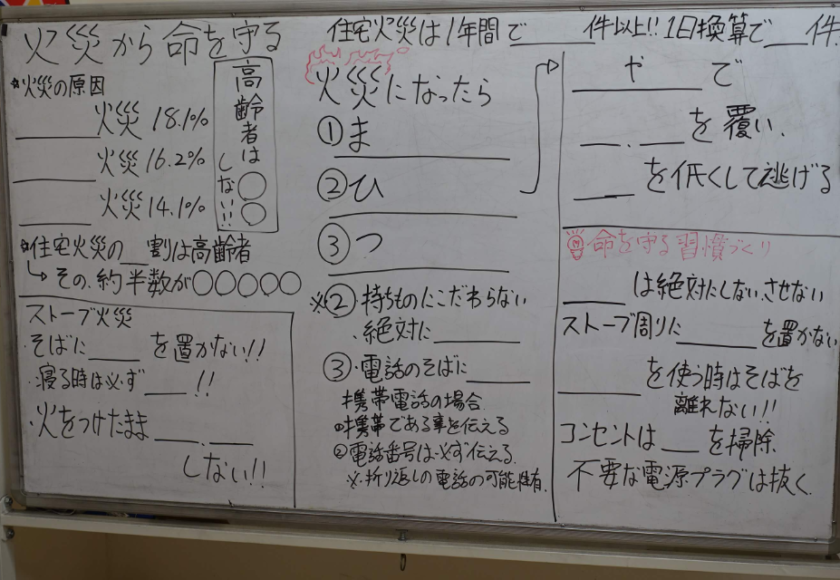 火災から命を守る
住宅火災は1年間で____件以上!!1日換算で__件
*火災の原因
____火災 18.1%
____火災 16.2%
____火災 14.1%
高齢者は○○
しない!!
*住宅火災の__割は高齢者
↳その約半数が○○○○○
ストーブ火災
・そばに____を置かない!!
・寝る時は必ず___!!
・火をつけたまま___.___
しない!!
火災になったら
①ま
②ひ
③つ
※②・持ちものにこだわらない
・絶対に____
③・電話のそばに____
携帯電話の場合
①携帯である事を伝える
②電話番号は必ず伝える
※折り返しの電話の可能性有.
____や____で
___.___を覆い、
____を低くして逃げる
命を守る習慣づくり
____は絶対にしない、させない
ストーブ周りに____を置かない
____を使う時はそばを
離れない!!
コンセントは___を掃除
不要な電源プラグは抜く